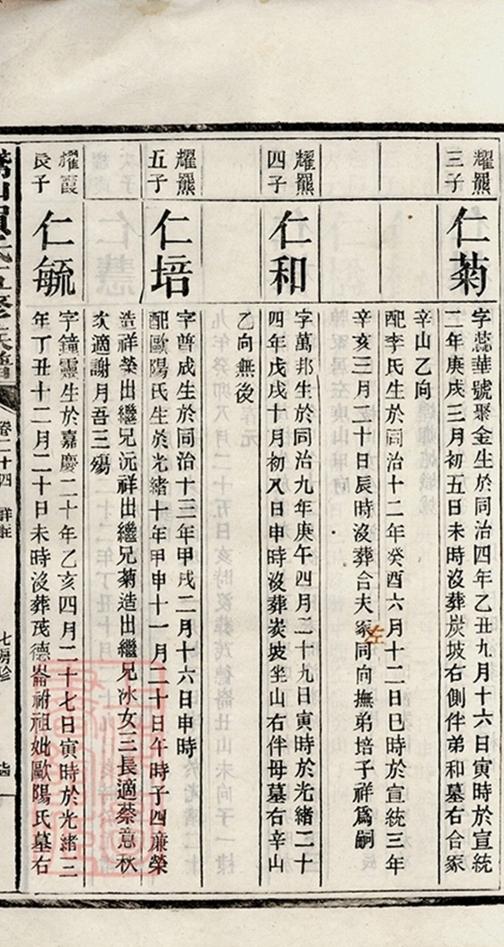 耀羆
三子
仁菊
字蕊華號聚金生於同治四年乙丑九月十六日寅時於宣統
二年庚戌三月初五日未時沒葬炭坡右側伴弟和墓右合冢
辛山乙向
配李氏生於同治十二年癸酉六月十二日巳時於宣統三年
辛亥三月二十日辰時沒葬合夫冢同向撫弟培子祥爲嗣
耀羆
四子
仁和
字萬邦生於同治九年庚午四月二十九日寅時於光緒二十
四年戊戌十月初八日申時沒葬炭坡坐山右伴母墓右辛山
乙向無後
耀羆
五子
仁培
字普成生於同治十三年甲戌二月十六日申時
配歐陽氏生於光緒十年甲申十一月二十日午時子四廉榮
造祥榮出繼兄沅祥出繼兄菊造出繼兄冰女三長適蔡意秋
次適謝月吾三殤
耀霞
長子
仁毓
字鐘靈生於嘉慶二十年乙亥四月二十七日寅時於光緒三
年丁丑十二月二十日未時沒葬茂德崙祔祖妣歐陽氏墓右
五修氏譜
卷二十四
七房